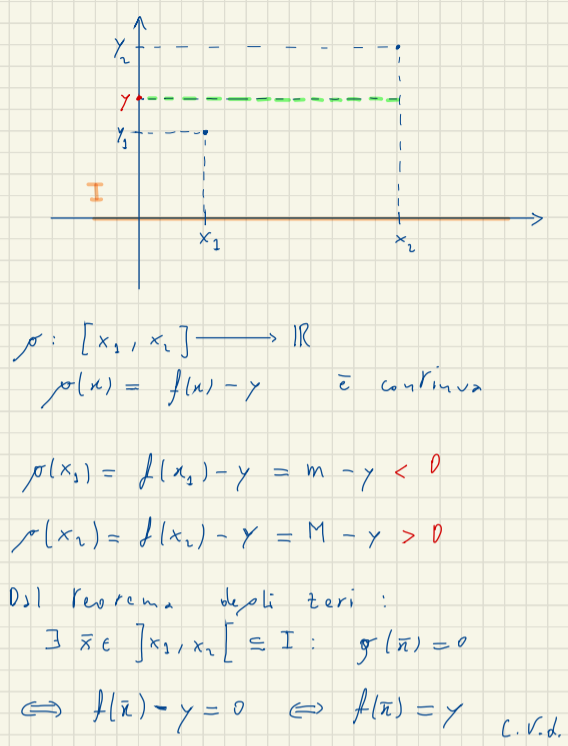 y₂
y
y₁
I
x₁ x₂
g: [x₁, x₂] ⟶ ℝ
g(x) = f(x) - y è continua
g(x₁) = f(x₁) - y = m - y < 0
g(x₂) = f(x₂) - y = M - y > 0
Dal teorema degli zeri :
∃ x̄ ∈ ]x₁, x₂[ ⊆ I : g(x̄) = 0
⟺ f(x̄) - y = 0 ⟺ f(x̄) = y
c.v.d.